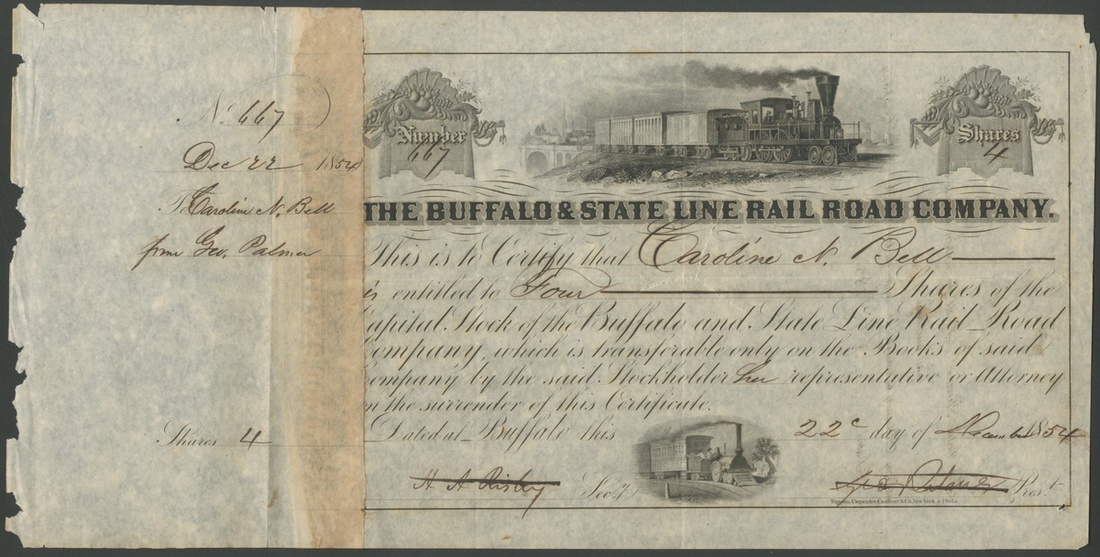 No. 667
Dec 22 1854
To Caroline N. Bell
from Geo. Palmer
Shares 4
Number
667
Shares
4
THE BUFFALO & STATE LINE RAIL ROAD COMPANY.
This is to Certify that Caroline N. Bell
is entitled to Four Shares of the
Capital Stock of the Buffalo and State Line Rail Road
Company, which is transferable only on the Books of said
Company by the said Stockholder her representative or Attorney
on the surrender of this Certificate.
Dated at Buffalo this 22d day of December 1854
H A Risley Secy. Geo. Palmer Prest.
Toppan, Carpenter, Casilear & Co. New York & Phila.